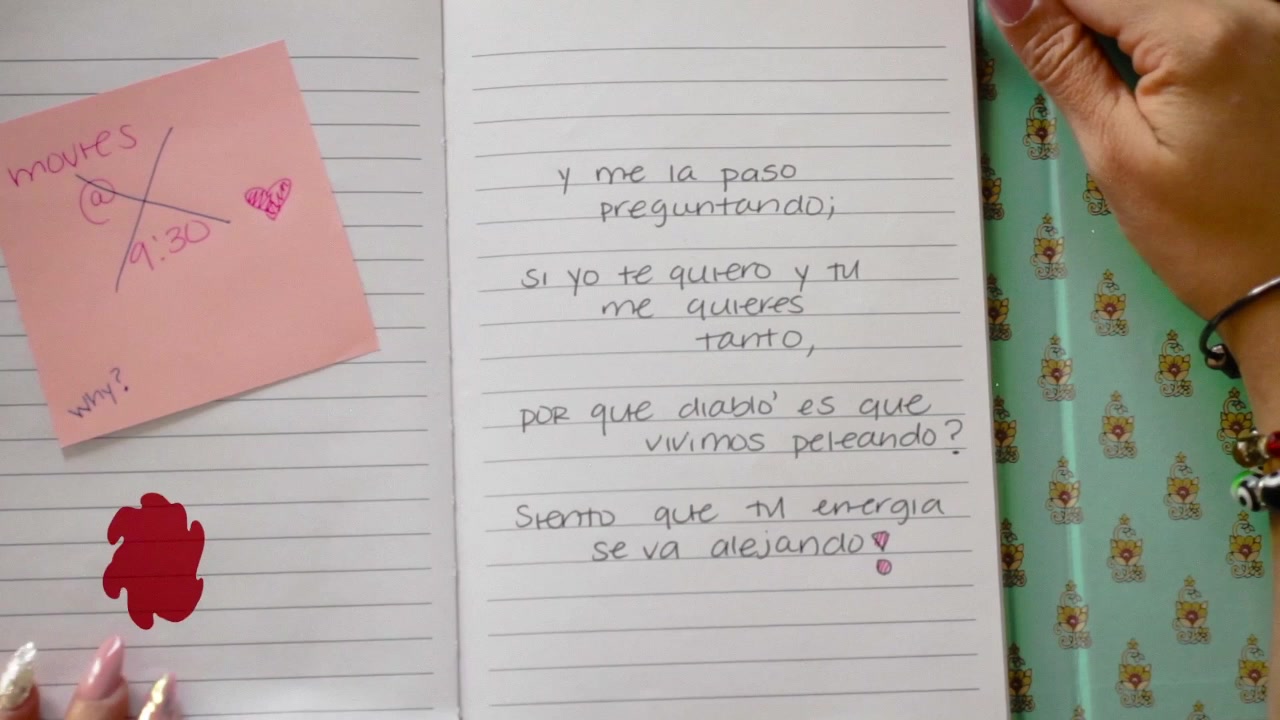 movies
@
9:30
why?
y me la paso
preguntando;
si yo te quiero y tu
me quieres
tanto,
por que diablo' es que
vivimos peleando?
Siento que tu energia
se va alejando!